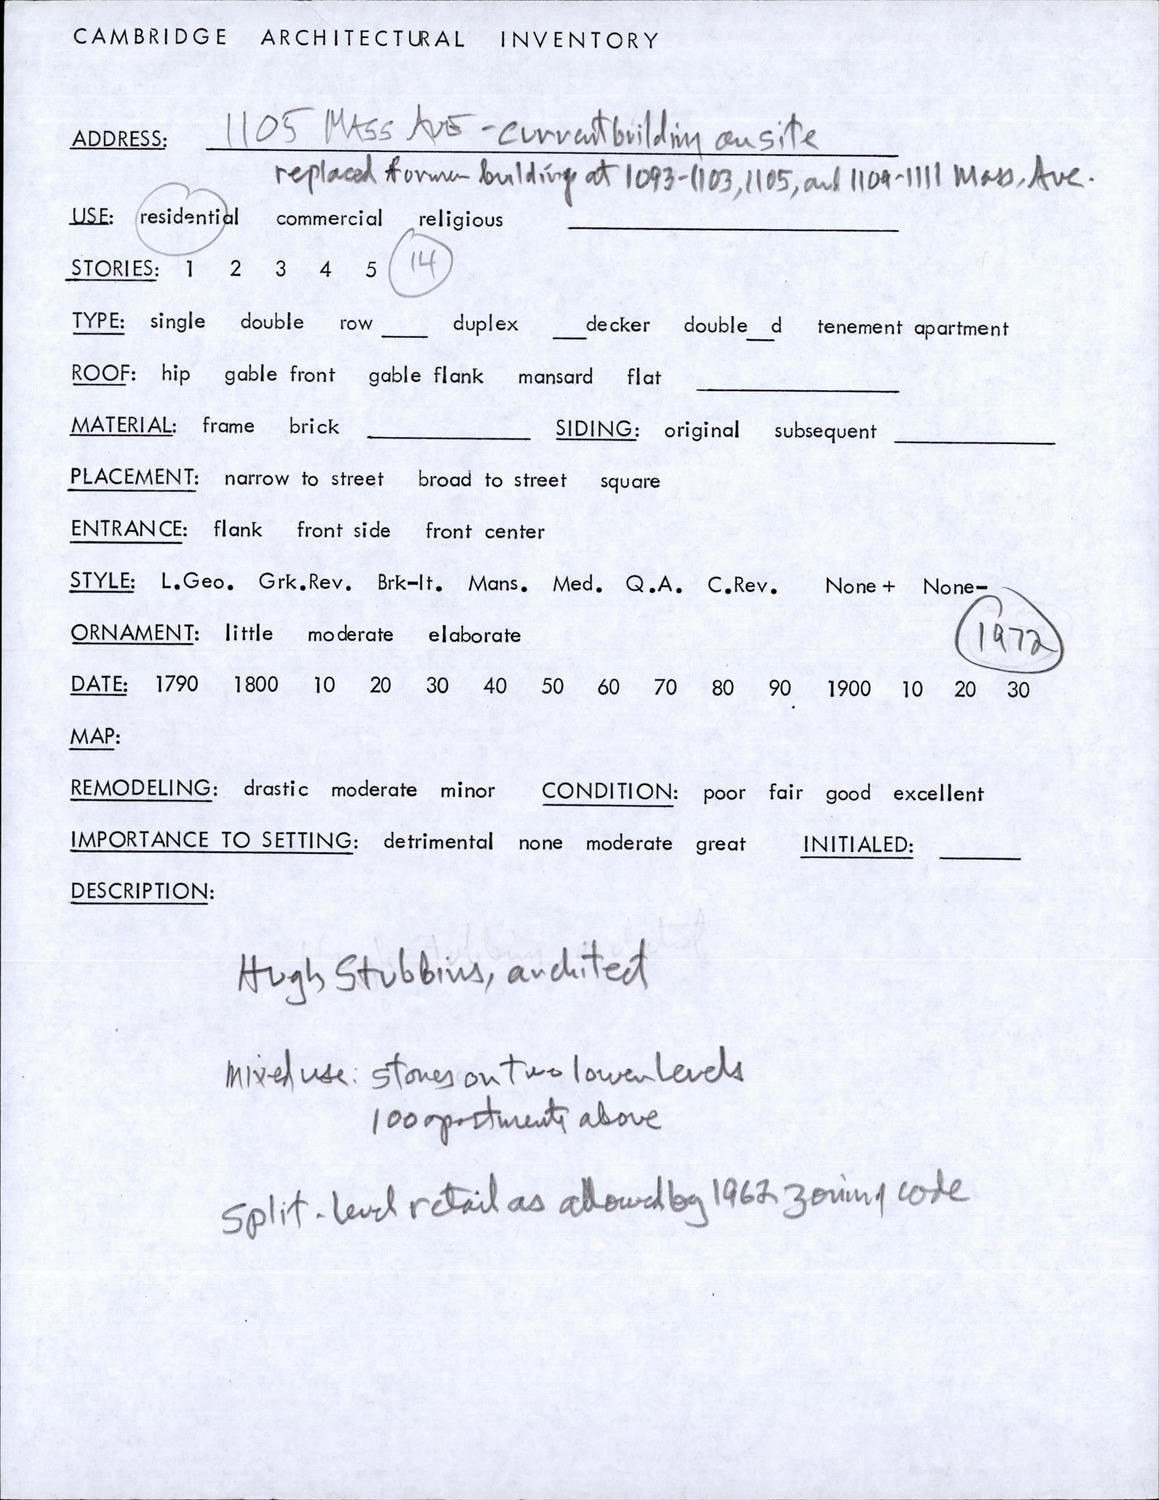 CAMBRIDGE ARCHITECTURAL INVENTORY
ADDRESS: 1105 MASS AVE - current building on site
replaced former building at 1093-1103, 1105, and 1109-1111 Mass. Ave.
USE: residential commercial religious
STORIES: 1 2 3 4 5 14
TYPE: single double row ____ duplex ___decker double__d tenement apartment
ROOF: hip gable front gable flank mansard flat
MATERIAL: frame brick SIDING: original subsequent
PLACEMENT: narrow to street broad to street square
ENTRANCE: flank front side front center
STYLE: L.Geo. Grk.Rev. Brk-It. Mans. Med. Q.A. C.Rev. None + None-
ORNAMENT: little moderate elaborate 1972
DATE: 1790 1800 10 20 30 40 50 60 70 80 90 1900 10 20 30
MAP:
REMODELING: drastic moderate minor CONDITION: poor fair good excellent
IMPORTANCE TO SETTING: detrimental none moderate great INITIALED:
DESCRIPTION:
Hugh Stubbins, architect
mixed use: stores on two lower levels
100 apartments above
split-level retail as allowed by 1962 zoning code